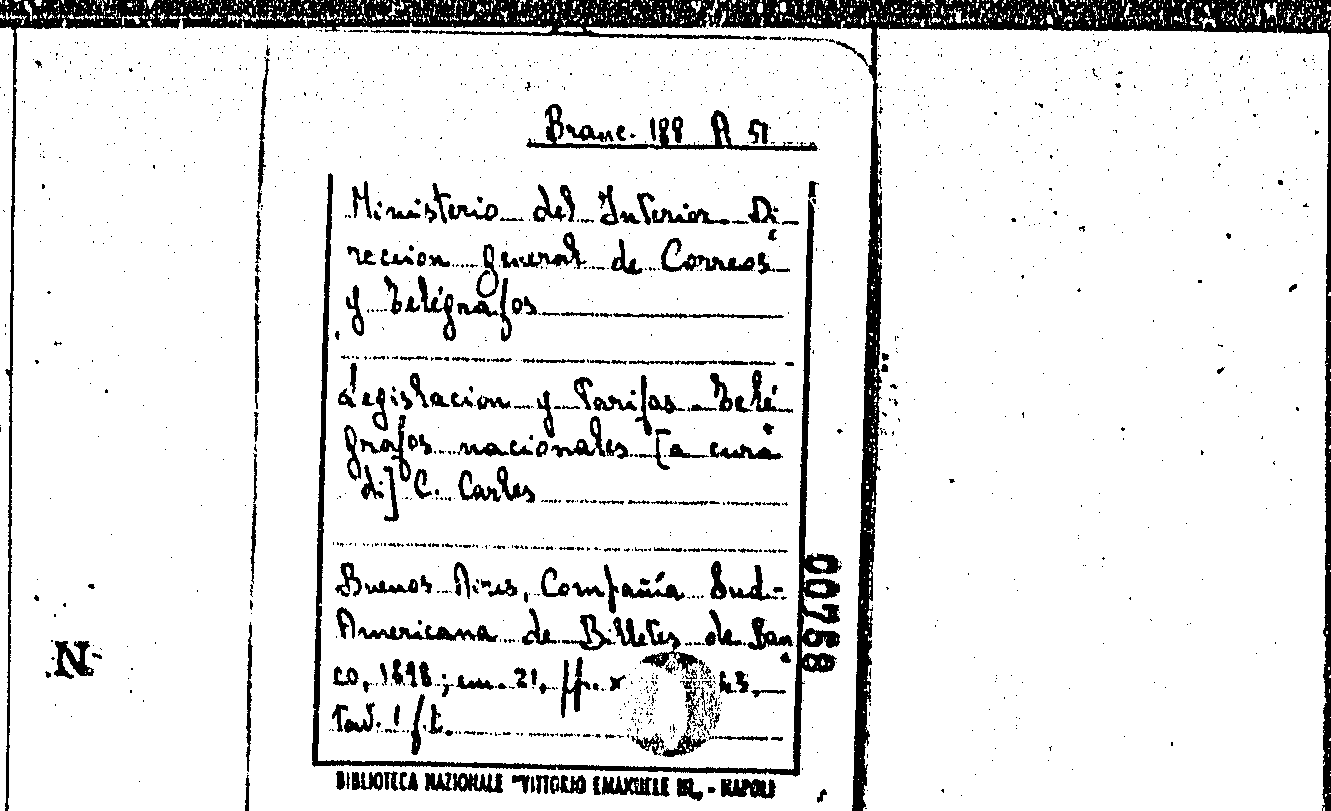 Branc. 188 A 51
Ministerio del Interior. Di-
reccion general de Correos
y Telégrafos
Legislacion y Tarifas. Telé-
grafos nacionales [a cura
di] C. Carles
Buenos Aires, Compañía Sud-
Americana de Billetes de Ban-
co, 1898; cm. 21, pp. x
tav. 1 f.t.
00758
N
BIBLIOTECA NAZIONALE "VITTORIO EMANUELE III" - NAPOLI